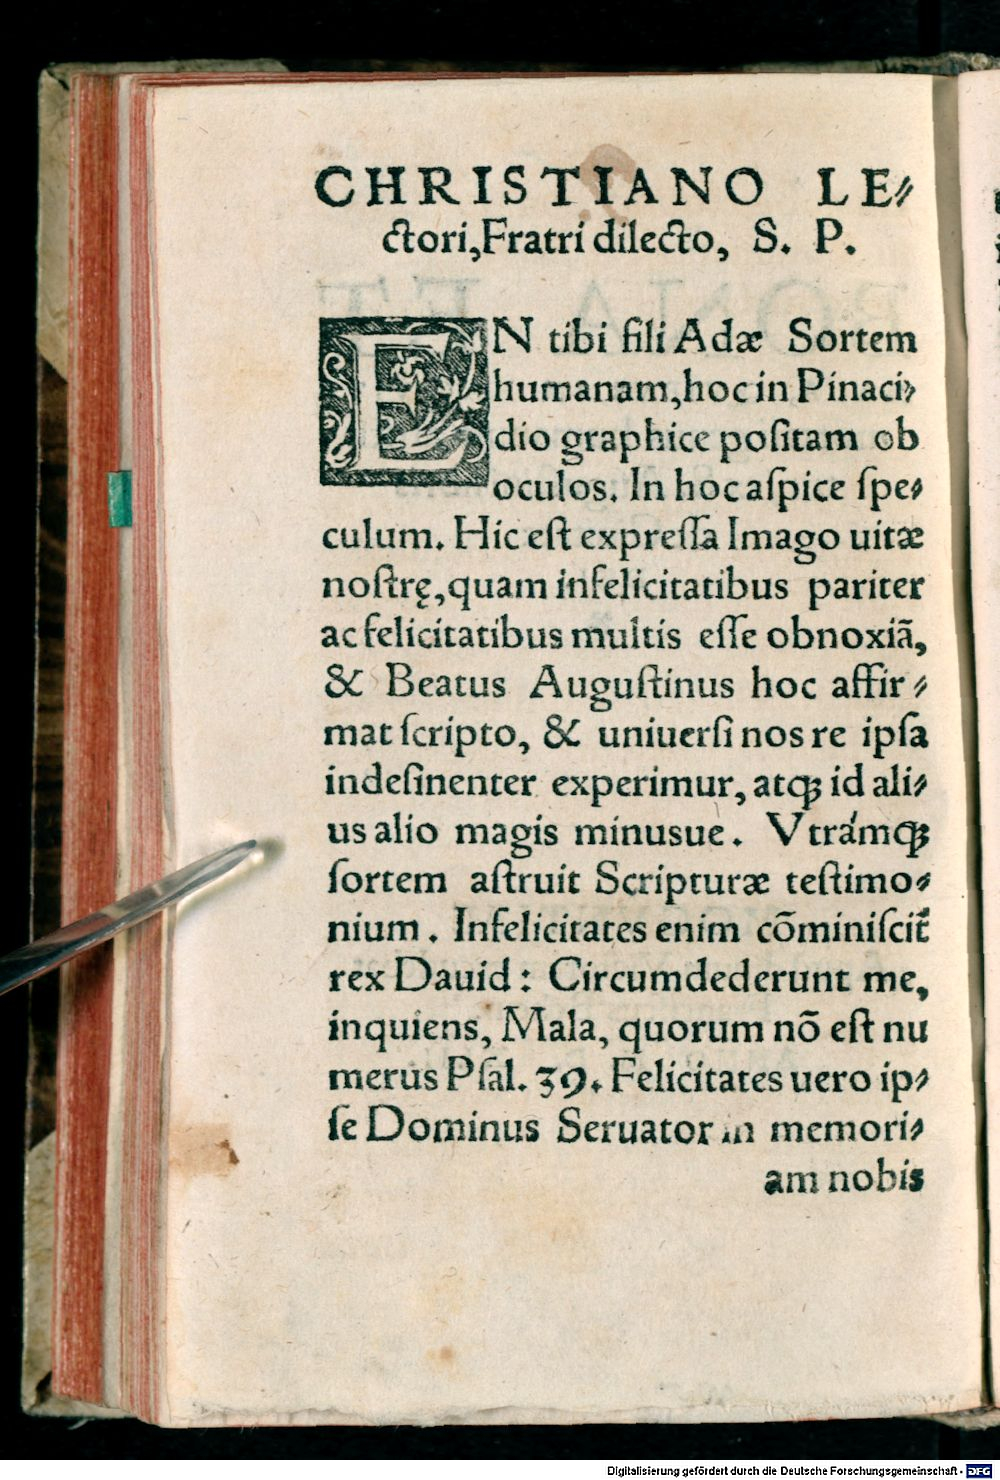 CHRISTIANO LE⸗
ctori, Fratri dilecto, S. P.
EN tibi fili Adæ Sortem
humanam, hoc in Pinaci⸗
dio graphice poſitam ob
oculos. In hoc aſpice ſpe⸗
culum. Hic eſt expreſſa Imago uitæ
noſtrę, quam infelicitatibus pariter
ac felicitatibus multis eſſe obnoxiã,
& Beatus Auguſtinus hoc affir⸗
mat ſcripto, & uniuerſi nos re ipſa
indeſinenter experimur, atqꝫ id ali⸗
us alio magis minusue. Vtrámqꝫ
ſortem aſtruit Scripturæ teſtimo⸗
nium. Infelicitates enim cõminiſcit᷑
rex Dauid: Circumdederunt me,
inquiens, Mala, quorum nõ eſt nu
merus Pſal. 39. Felicitates uero ip⸗
ſe Dominus Seruator in memori⸗
am nobis
Digitalisierung gefördert durch die Deutsche Forschungsgemeinschaft - DFG